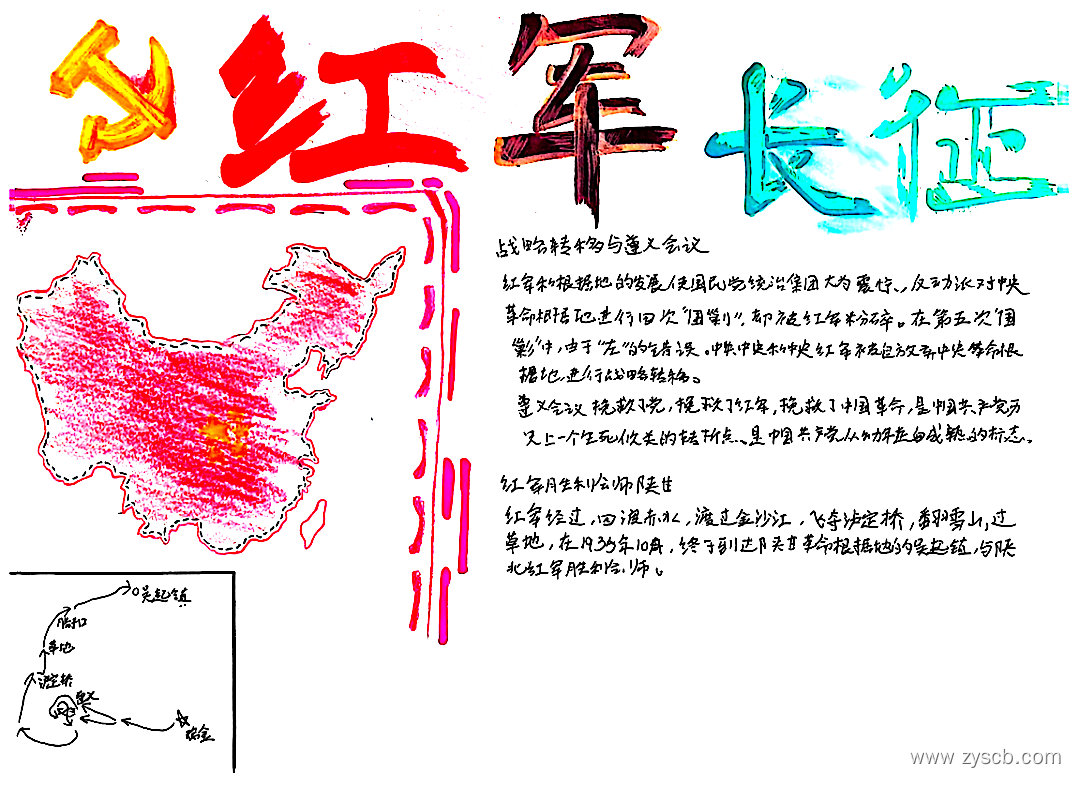 红军长征
战略转移与遵义会议
红军和根据地的发展使国民党统治集团大为震惊、反动派对中央
革命根据地进行四次"围剿",都被红军粉碎。在第五次"围
剿"中,由于"左"的错误。中共中央和中央红军被迫放弃中央革命根
据地进行战略转移。
遵义会议挽救了党,挽救了红军,挽救了中国革命,是中国共产党历
史上一个生死攸关的转折点、是中国共产党从幼年走向成熟的标志。
红军胜利会师陕甘
红军经过,四渡赤水,渡过金沙江,飞夺泸定桥,翻雪山,过
草地,在1935年10月,终于到达陕甘革命根据地的吴起镇,与陕
北红军胜利会师。
吴起镇
腊子口
草地
泸定桥
遵义
瑞金
www.zyscb.com